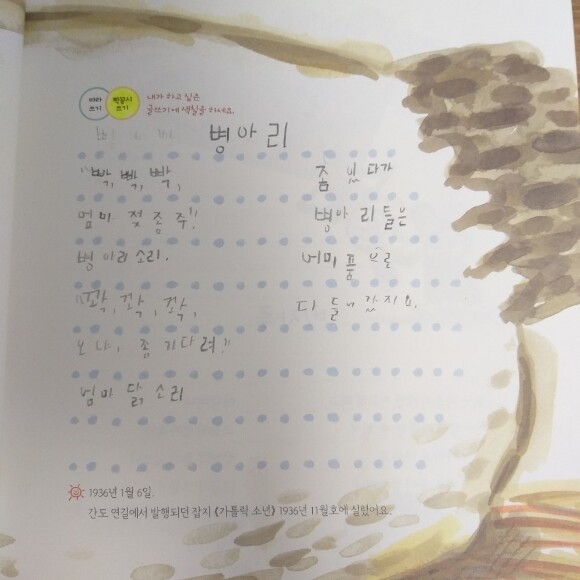 따라
쓰기
바꿔서
쓰기
내가 하고 싶은
글쓰기에 색칠을 하세요.
병아리
"빡, 빡, 빡,
엄마 젖 좀 주"
병아리소리.
"꺽, 꺽, 꺽,
오냐, 좀 기다려"
엄마 닭 소리
좀 있다가
병아리들은
어미 품으로
다 들어갔지요.
1936년 1월 6일.
간도 연길에서 발행되던 잡지 《가톨릭 소년》 1936년 11월호에 실렸어요.